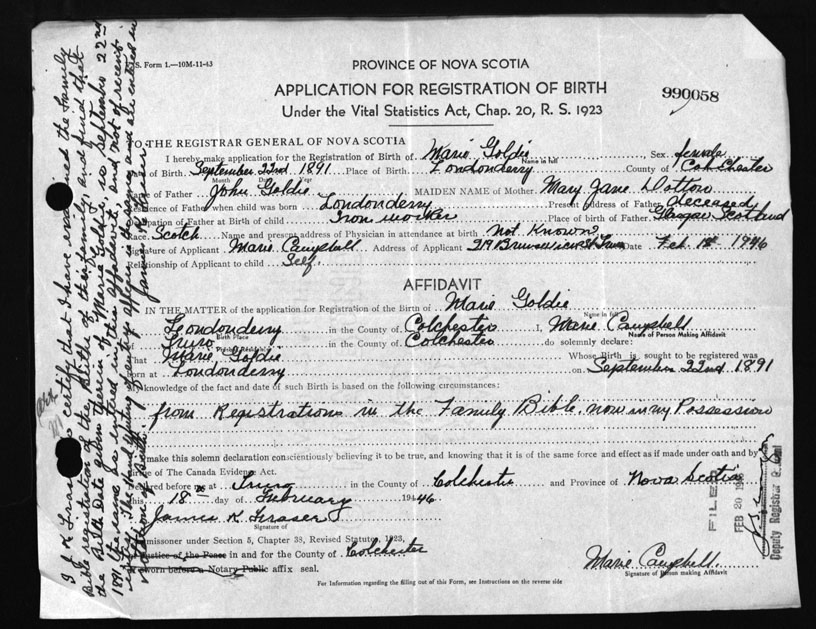 S. Form 1.—10M-11-43
PROVINCE OF NOVA SCOTIA
APPLICATION FOR REGISTRATION OF BIRTH
990058
Under the Vital Statistics Act, Chap. 20, R. S. 1923
TO THE REGISTRAR GENERAL OF NOVA SCOTIA
I hereby make application for the Registration of Birth of Marie Goldie Sex female
Name in full
of Birth September 22nd 1891 Place of Birth Londonderry County of Colchester
Month Day Year
of Father John Goldie MAIDEN NAME of Mother Mary Jane Dotton
Residence of Father when child was born Londonderry Present address of Father deceased
Occupation of Father at Birth of child Iron worker Place of birth of Father Glasgow Scotland
Race Scotch Name and present address of Physician in attendance at birth Not Known
Signature of Applicant Marie Campbell Address of Applicant 219 Brunswick St Truro Date Feb. 18th 1946
Relationship of Applicant to child Self.
AFFIDAVIT
IN THE MATTER of the application for Registration of the Birth of Marie Goldie
Name in full
Londonderry in the County of Colchester I, Marie Campbell
Birth Place Name of Person Making Affidavit
of Truro in the County of Colchester do solemnly declare:
That Marie Goldie Whose Birth is sought to be registered was
born at Londonderry on September 22nd 1891
My knowledge of the fact and date of such Birth is based on the following circumstances:
from Registrations in the Family Bible, now in my Possession
make this solemn declaration conscientiously believing it to be true, and knowing that it is of the same force and effect as if made under oath and by
virtue of The Canada Evidence Act.
Declared before me at Truro in the County of Colchester and Province of Nova Scotia
this 18th day of February 1946
James K Fraser
Signature of
Commissioner under Section 5, Chapter 38, Revised Statutes, 1923,
or Justice of the Peace in and for the County of Colchester
Sworn before a Notary Public affix seal.
Marie Campbell
Signature of Person making Affidavit
For Information regarding the filling out of this Form, see Instructions on the reverse side
FILED
FEB 20 1946
Deputy Registrar General
I J. K. Fraser certify that I have examined the Family
Bible registration of the Births of this family and find that
the Birth Date given therein of Marie Goldie, is, September 22nd
1891